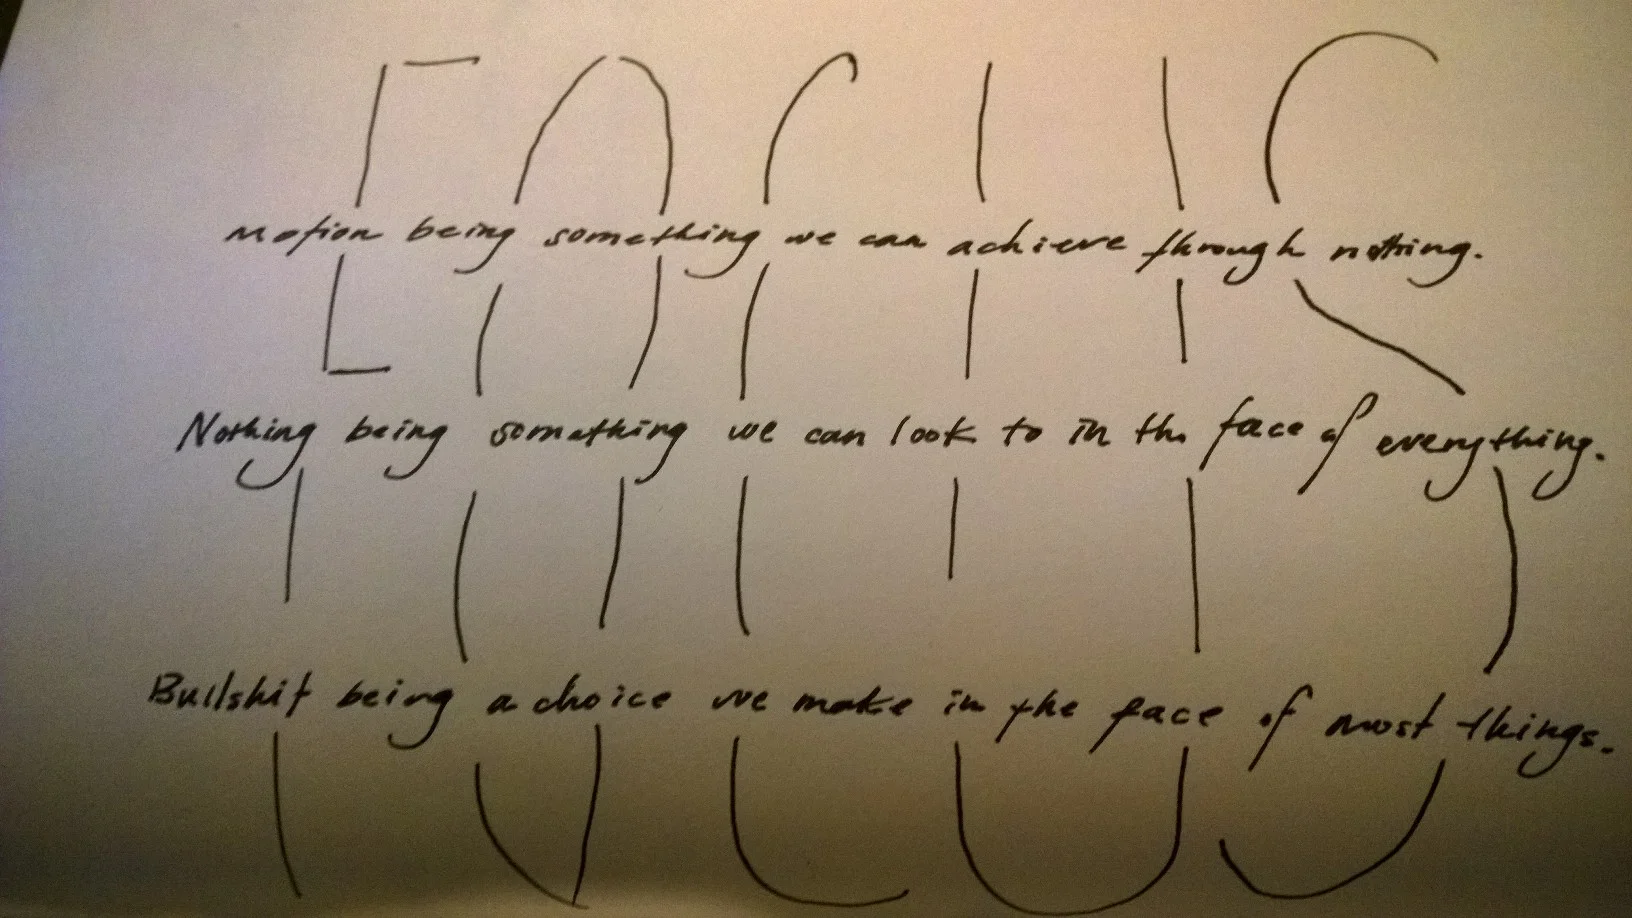 FOCUS
motion being something we can achieve through nothing.
Nothing being something we can look to in the face of everything.
Bullshit being a choice we make in the face of most things.